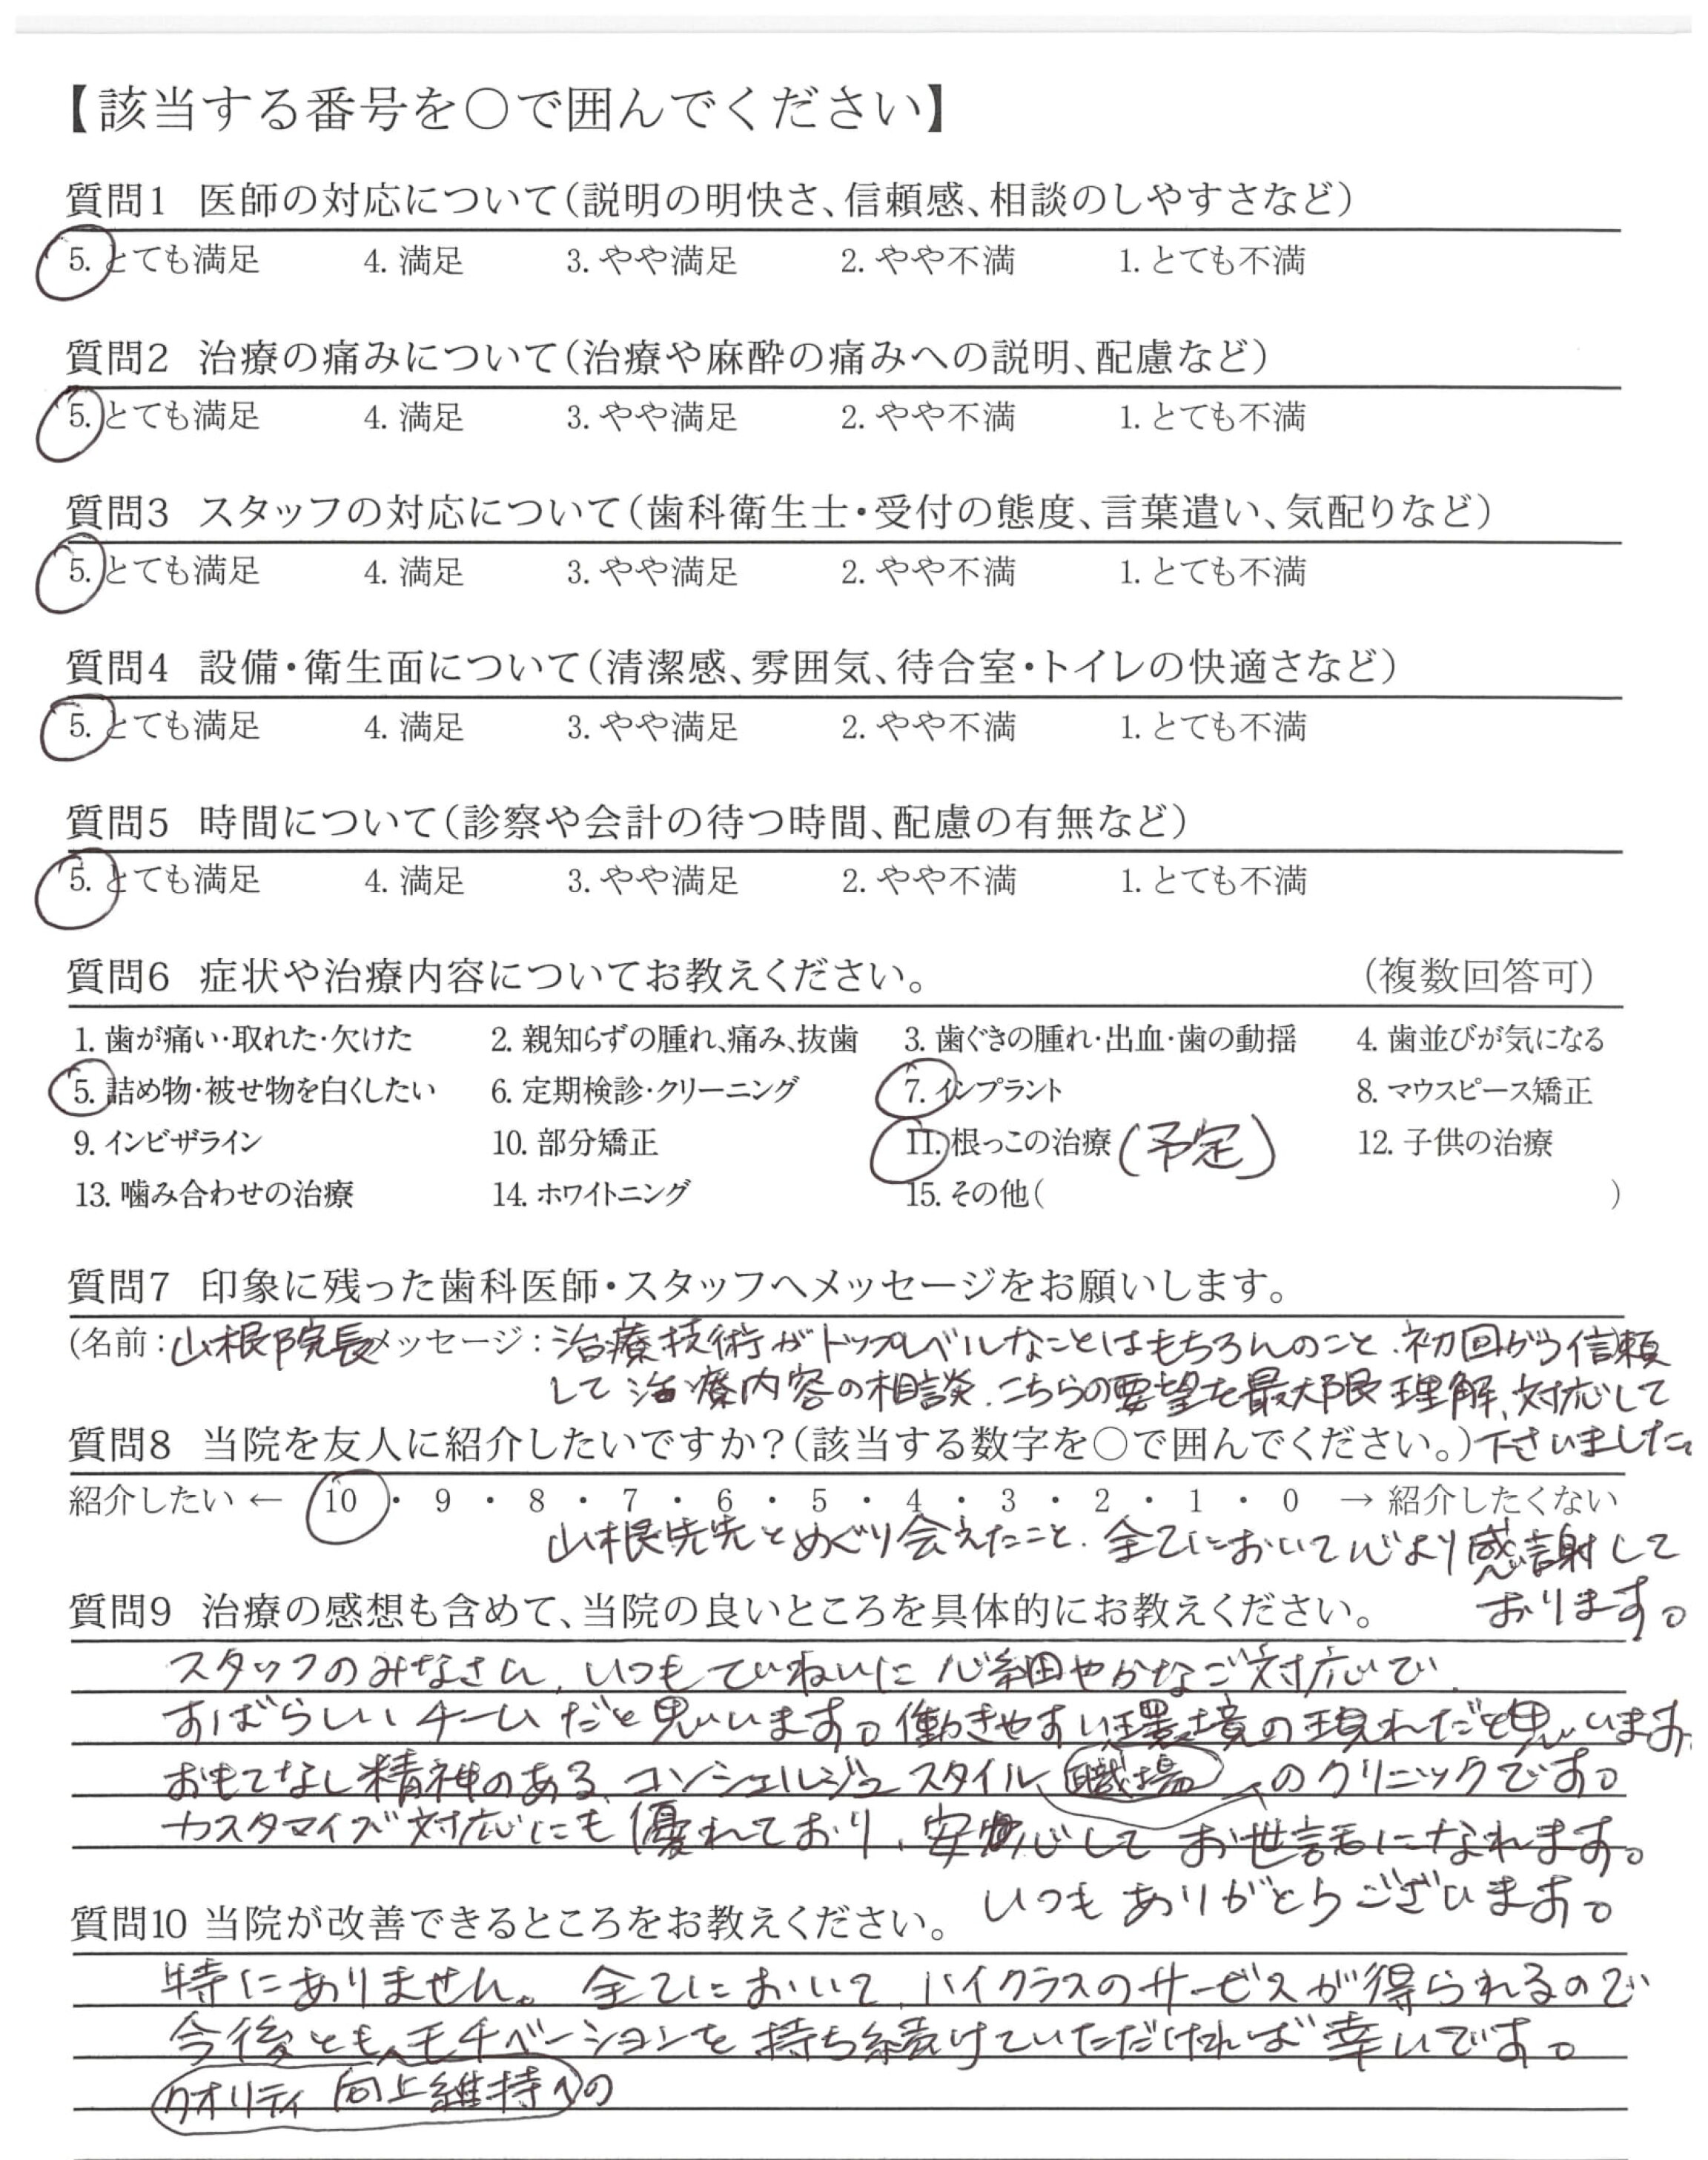 【該当する番号を○で囲んでください】
質問1 医師の対応について(説明の明快さ、信頼感、相談のしやすさなど)
5. とても満足 4. 満足 3. やや満足 2. やや不満 1. とても不満
質問2 治療の痛みについて(治療や麻酔の痛みへの説明、配慮など)
5. とても満足 4. 満足 3. やや満足 2. やや不満 1. とても不満
質問3 スタッフの対応について(歯科衛生士・受付の態度、言葉遣い、気配りなど)
5. とても満足 4. 満足 3. やや満足 2. やや不満 1. とても不満
質問4 設備・衛生面について(清潔感、雰囲気、待合室・トイレの快適さなど)
5. とても満足 4. 満足 3. やや満足 2. やや不満 1. とても不満
質問5 時間について(診察や会計の待つ時間、配慮の有無など)
5. とても満足 4. 満足 3. やや満足 2. やや不満 1. とても不満
質問6 症状や治療内容についてお教えください。 (複数回答可)
1. 歯が痛い・取れた・欠けた 2. 親知らずの腫れ、痛み、抜歯 3. 歯ぐきの腫れ・出血・歯の動揺 4. 歯並びが気になる
5. 詰め物・被せ物を白くしたい 6. 定期検診・クリーニング 7. インプラント 8. マウスピース矯正
9. インビザライン 10. 部分矯正 11. 根っこの治療 (予定) 12. 子供の治療
13. 噛み合わせの治療 14. ホワイトニング 15. その他( )
質問7 印象に残った歯科医師・スタッフへメッセージをお願いします。
(名前:山根院長 メッセージ:治療技術がトップレベルなことはもちろんのこと、初回から信頼
して治療内容の相談、こちらの要望を最大限理解、対応して
下さいました。
質問8 当院を友人に紹介したいですか?(該当する数字を○で囲んでください。)
紹介したい ← 10 ・ 9 ・ 8 ・ 7 ・ 6 ・ 5 ・ 4 ・ 3 ・ 2 ・ 1 ・ 0 → 紹介したくない
山根先先とめぐり会えたこと、全てにおいて心より感謝して
おります。
質問9 治療の感想も含めて、当院の良いところを具体的にお教えください。
スタッフのみなさん、いつもていねいに心細やかなご対応で、
すばらしいチームだと思います。働きやすい環境の現れだと思います。
おもてなし精神のある、コンシェルジュスタイル、職場のクリニックです。
カスタマイズ対応にも優れており、安心してお世話になれます。
いつもありがとうございます。
質問10 当院が改善できるところをお教えください。
特にありません。全てにおいて、ハイクラスのサービスが得られるので
今後とも、モチベーションを持ち続けていただければ幸いです。
クオリティ向上維持への